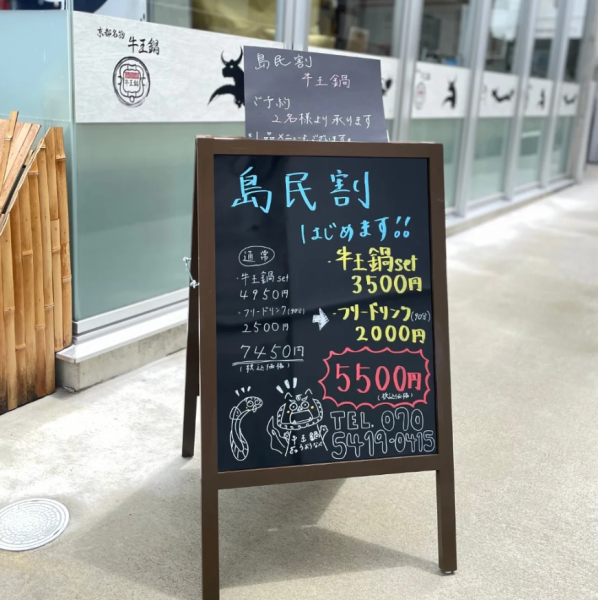 京都名物
牛王鍋
島民割
牛王鍋
ご予約
2名様より承ります
島民割
はじめます!!
通常
・牛王鍋set
4950円
・フリードリンク(90分)
2500円
7450円
(税込価格)
・牛王鍋set
3500円
➡ ・フリードリンク(90分)
2000円
5500円
(税込価格)
牛王鍋
ぎゅうおうなべ
TEL. 070
5419-0415